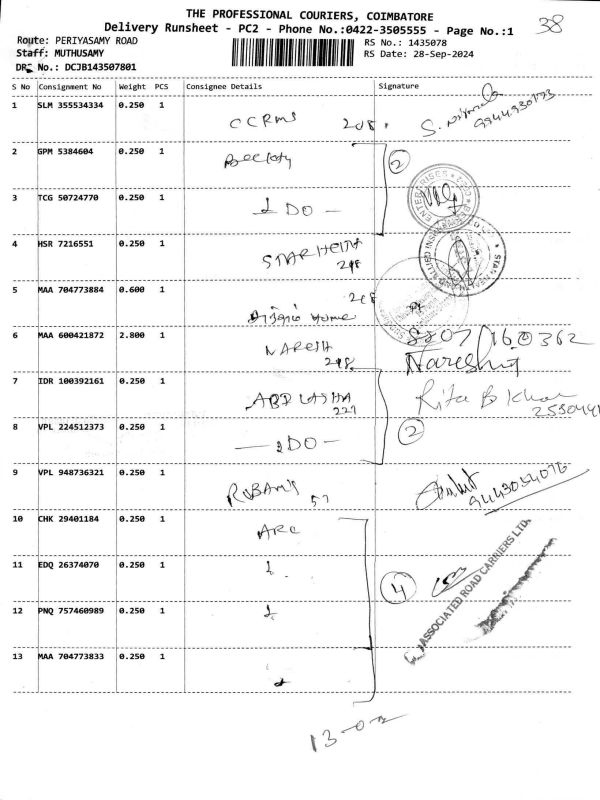 THE PROFESSIONAL COURIERS, COIMBATORE
Delivery Runsheet - PC2 - Phone No.:0422-3505555 - Page No.:1
38
Route: PERIYASAMY ROAD
RS No.: 1435078
Staff: MUTHUSAMY
RS Date: 28-Sep-2024
DRS No.: DCJB143507801
S No Consignment No Weight PCS Consignee Details Signature
1 SLM 355534334 0.250 1
CCRMS 208 S. Nirmala
9944930173
2 GPM 5384604 0.250 1
2
3 TCG 50724770 0.250 1
DO
ENTERPRISES
4 HSR 7216551 0.250 1
STARHEITH
298
5 MAA 704773884 0.600 1
208
Home
6 MAA 600421872 2.800 1
NARESH 8807160362
298 Naresh
7 IDR 100392161 0.250 1
221 Rita B Khar
8 VPL 224512373 0.250 1
DO 2
9 VPL 948736321 0.250 1
57 9443054076
10 CHK 29401184 0.250 1
ARC
11 EDQ 26374070 0.250 1
4
ASSOCIATED ROAD CARRIERS LTD.
12 PNQ 757460989 0.250 1
13 MAA 704773833 0.250 1
13-02